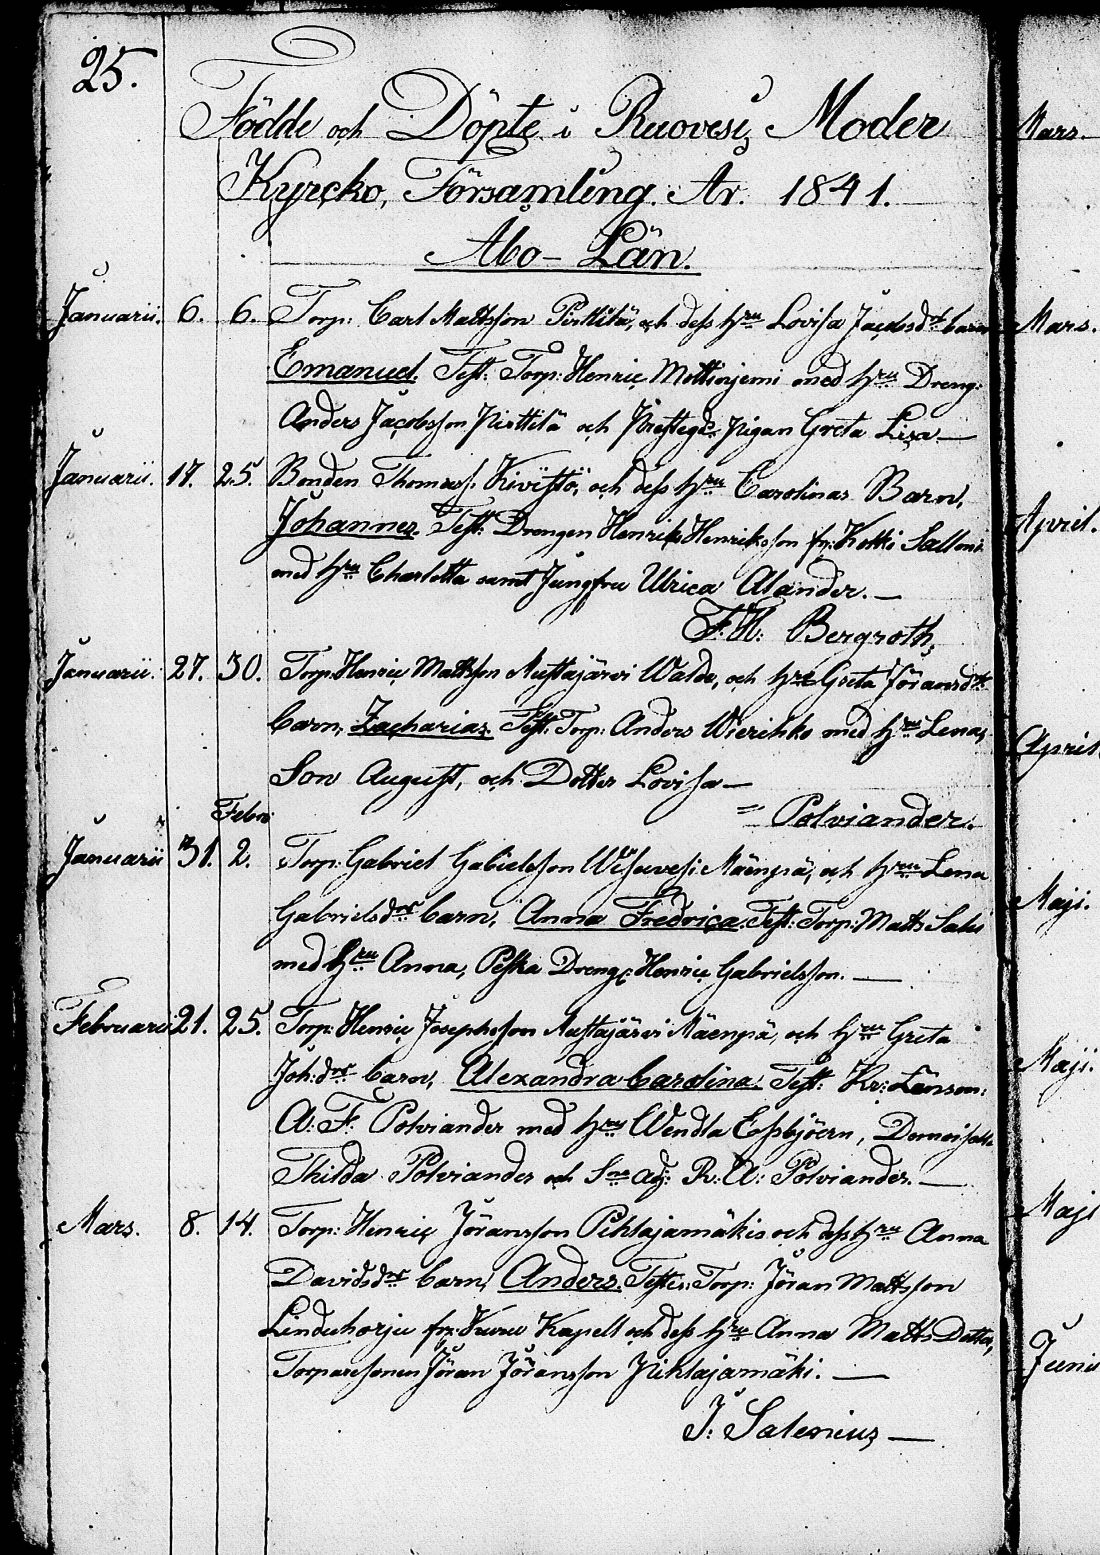 25.
Födde och Döpte i Ruovesi Moder
Kyrcko, Församling. År. 1841.
Abo-Län.
Januarii. 6. 6. Torp: Carl Mattsson Pirttilä, och dess hru Lovisa Jacobsdr barn
Emanuel. Test: Torp: Henric Mottinjemi med hru Dreng:
Anders Jacobsson Pirttilä och Prestegs Pigan Greta Lisa —
Januarii. 17. 25. Bonden Thomas Kivistö, och dess hru Carolinas Barn,
Johannes. Test: Drengen Henrik Henriksson fr: Kotki
med hru Charlotta samt Jungfru Ulrica Alander. —
F: H: Bergroth,
Januarii: 27. 30. Torp: Henric Mattsson Mustajärvi Walda, och hru Greta Jöransdr
barn, Zacharias. Test: Torp: Anders Wierikko med hru Lena,
Son August, och Dotter Lovisa —
= Polviander.
Febru:
Januarii 31. 2. Torp: Gabriel Gabrielsson Wisuvesi Mäenpä, och hru Lena
Gabrielsdr barn, Anna Fredrica. Test: Torp: Matts
med hru Anna, Peska Dreng Henric Gabrielsson. —
Februarii 21. 25. Torp: Henric Josephsson Mustajärvi Mäenpä, och hru Greta
Joh:dr barn, Alexandra Carolina. Test: Kr: Länsm:
A: F: Polviander med hru Wendla Essbjöern,
Thilda Polviander och Sne adj: R: A: Polviander. —
Mars. 8. 14. Torp: Henric Jöransson Pihlajamäkis och dess hru Anna
Davidsdr barn, Anders. Test: Torp: Jöran Mattsson
Linduharju fr: Kuru Kapell och dess hru Anna Matts Dotter,
Torparesonen Jöran Jöransson Pihlajamäki. —
J: Salenius —
Mars.
Mars.
April.
April
Maji.
Maji.
Maji
Junii